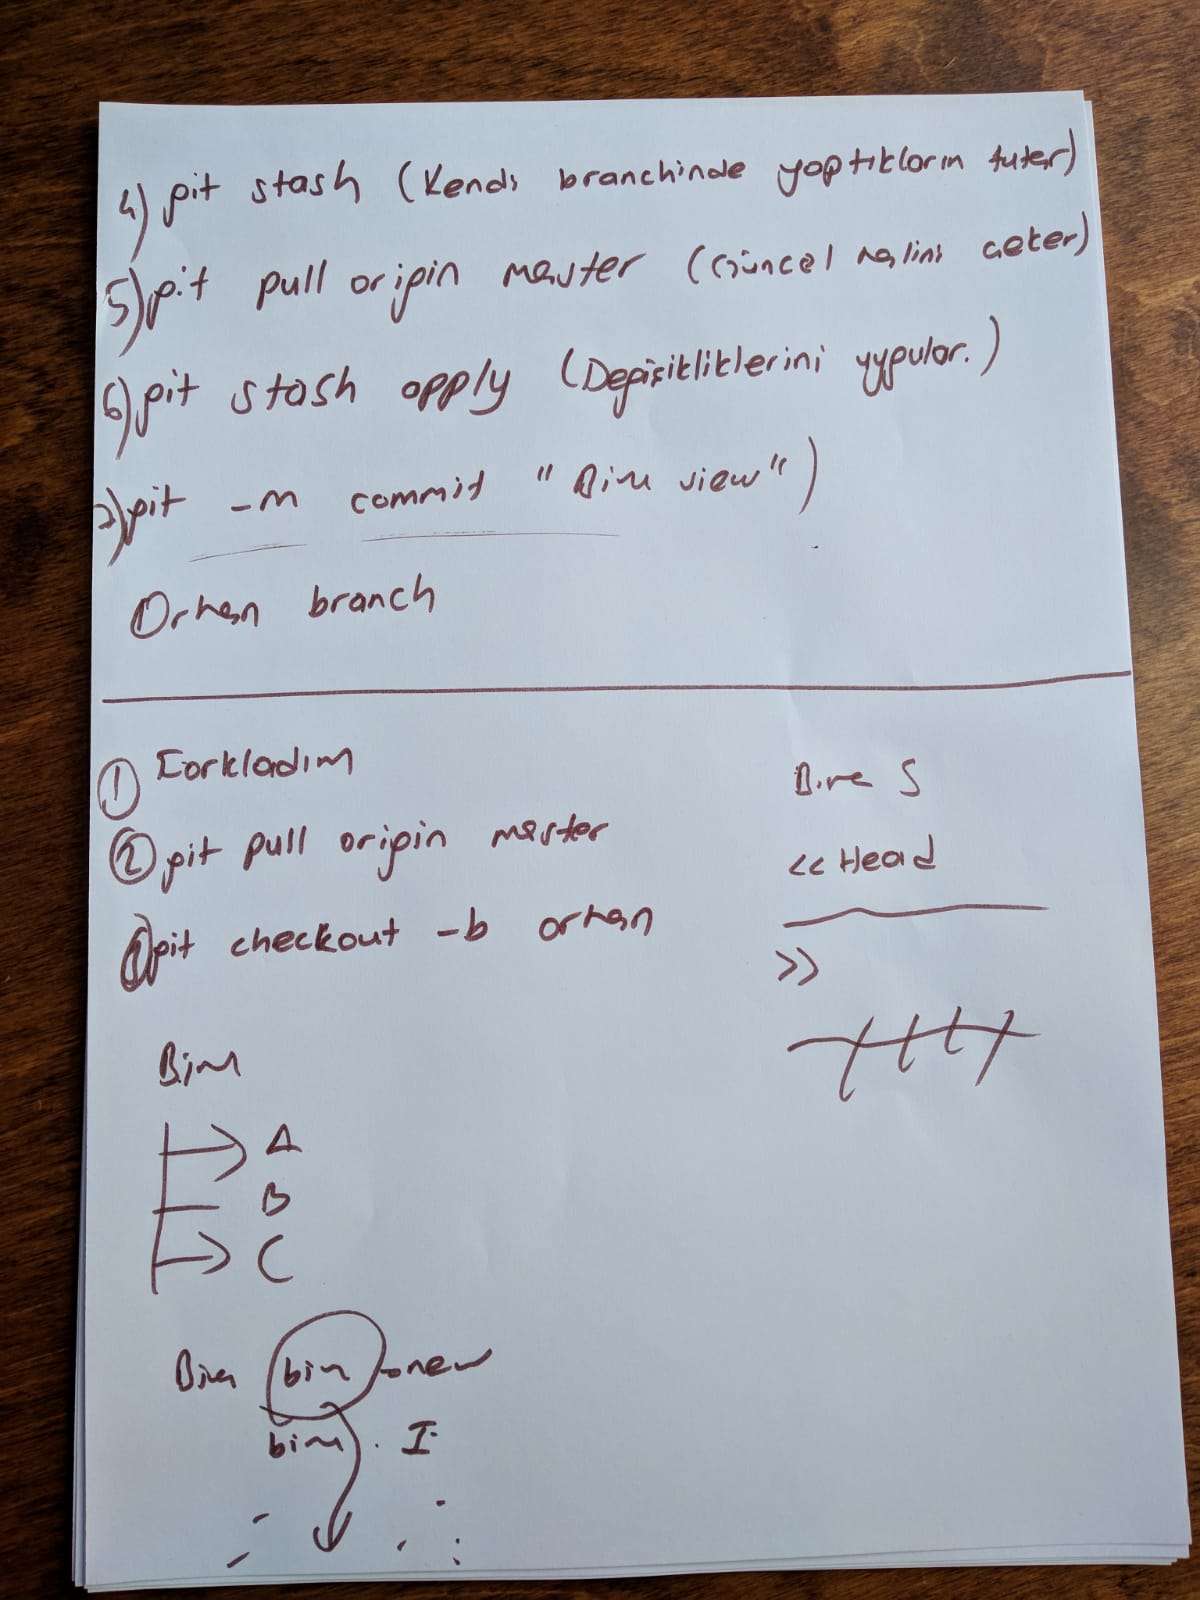 4) git stash (Kendi branchinde yaptıkların tutar)
5) git pull origin master (Güncel halini çeker)
6) git stash apply (Değişikliklerini uygular.)
7) git -m commit "Bim view")
Orhan branch
① Forkladım
② git pull origin master
③ git checkout -b orhan
Bim
A
B
C
Bim bim -new
bim . I
S
<< Head
>>